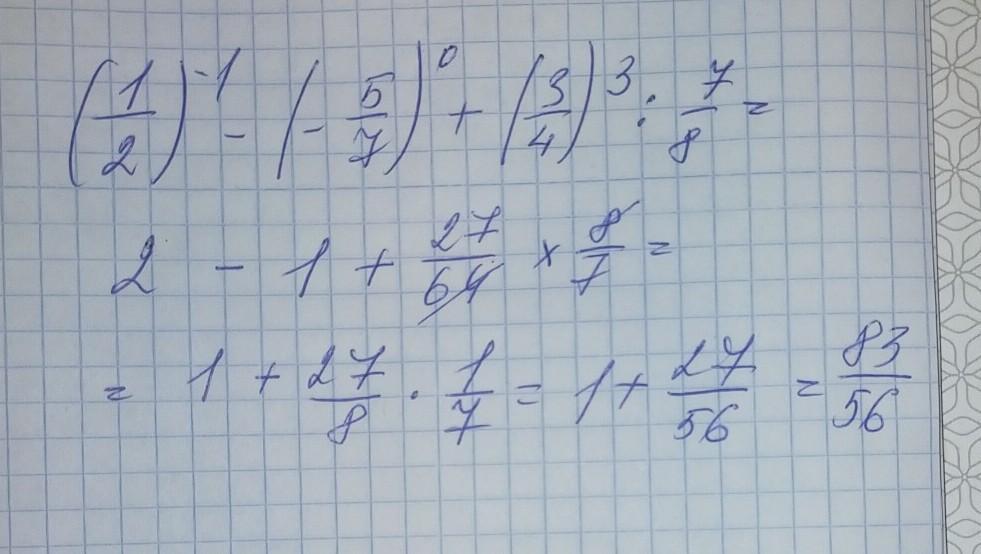 (1/2)^-1 - (- 5/7)^0 + (3/4)^3 : 7/8 =
2 - 1 + 27/64 × 8/7 =
= 1 + 27/8 · 1/7 = 1 + 27/56 = 83/56